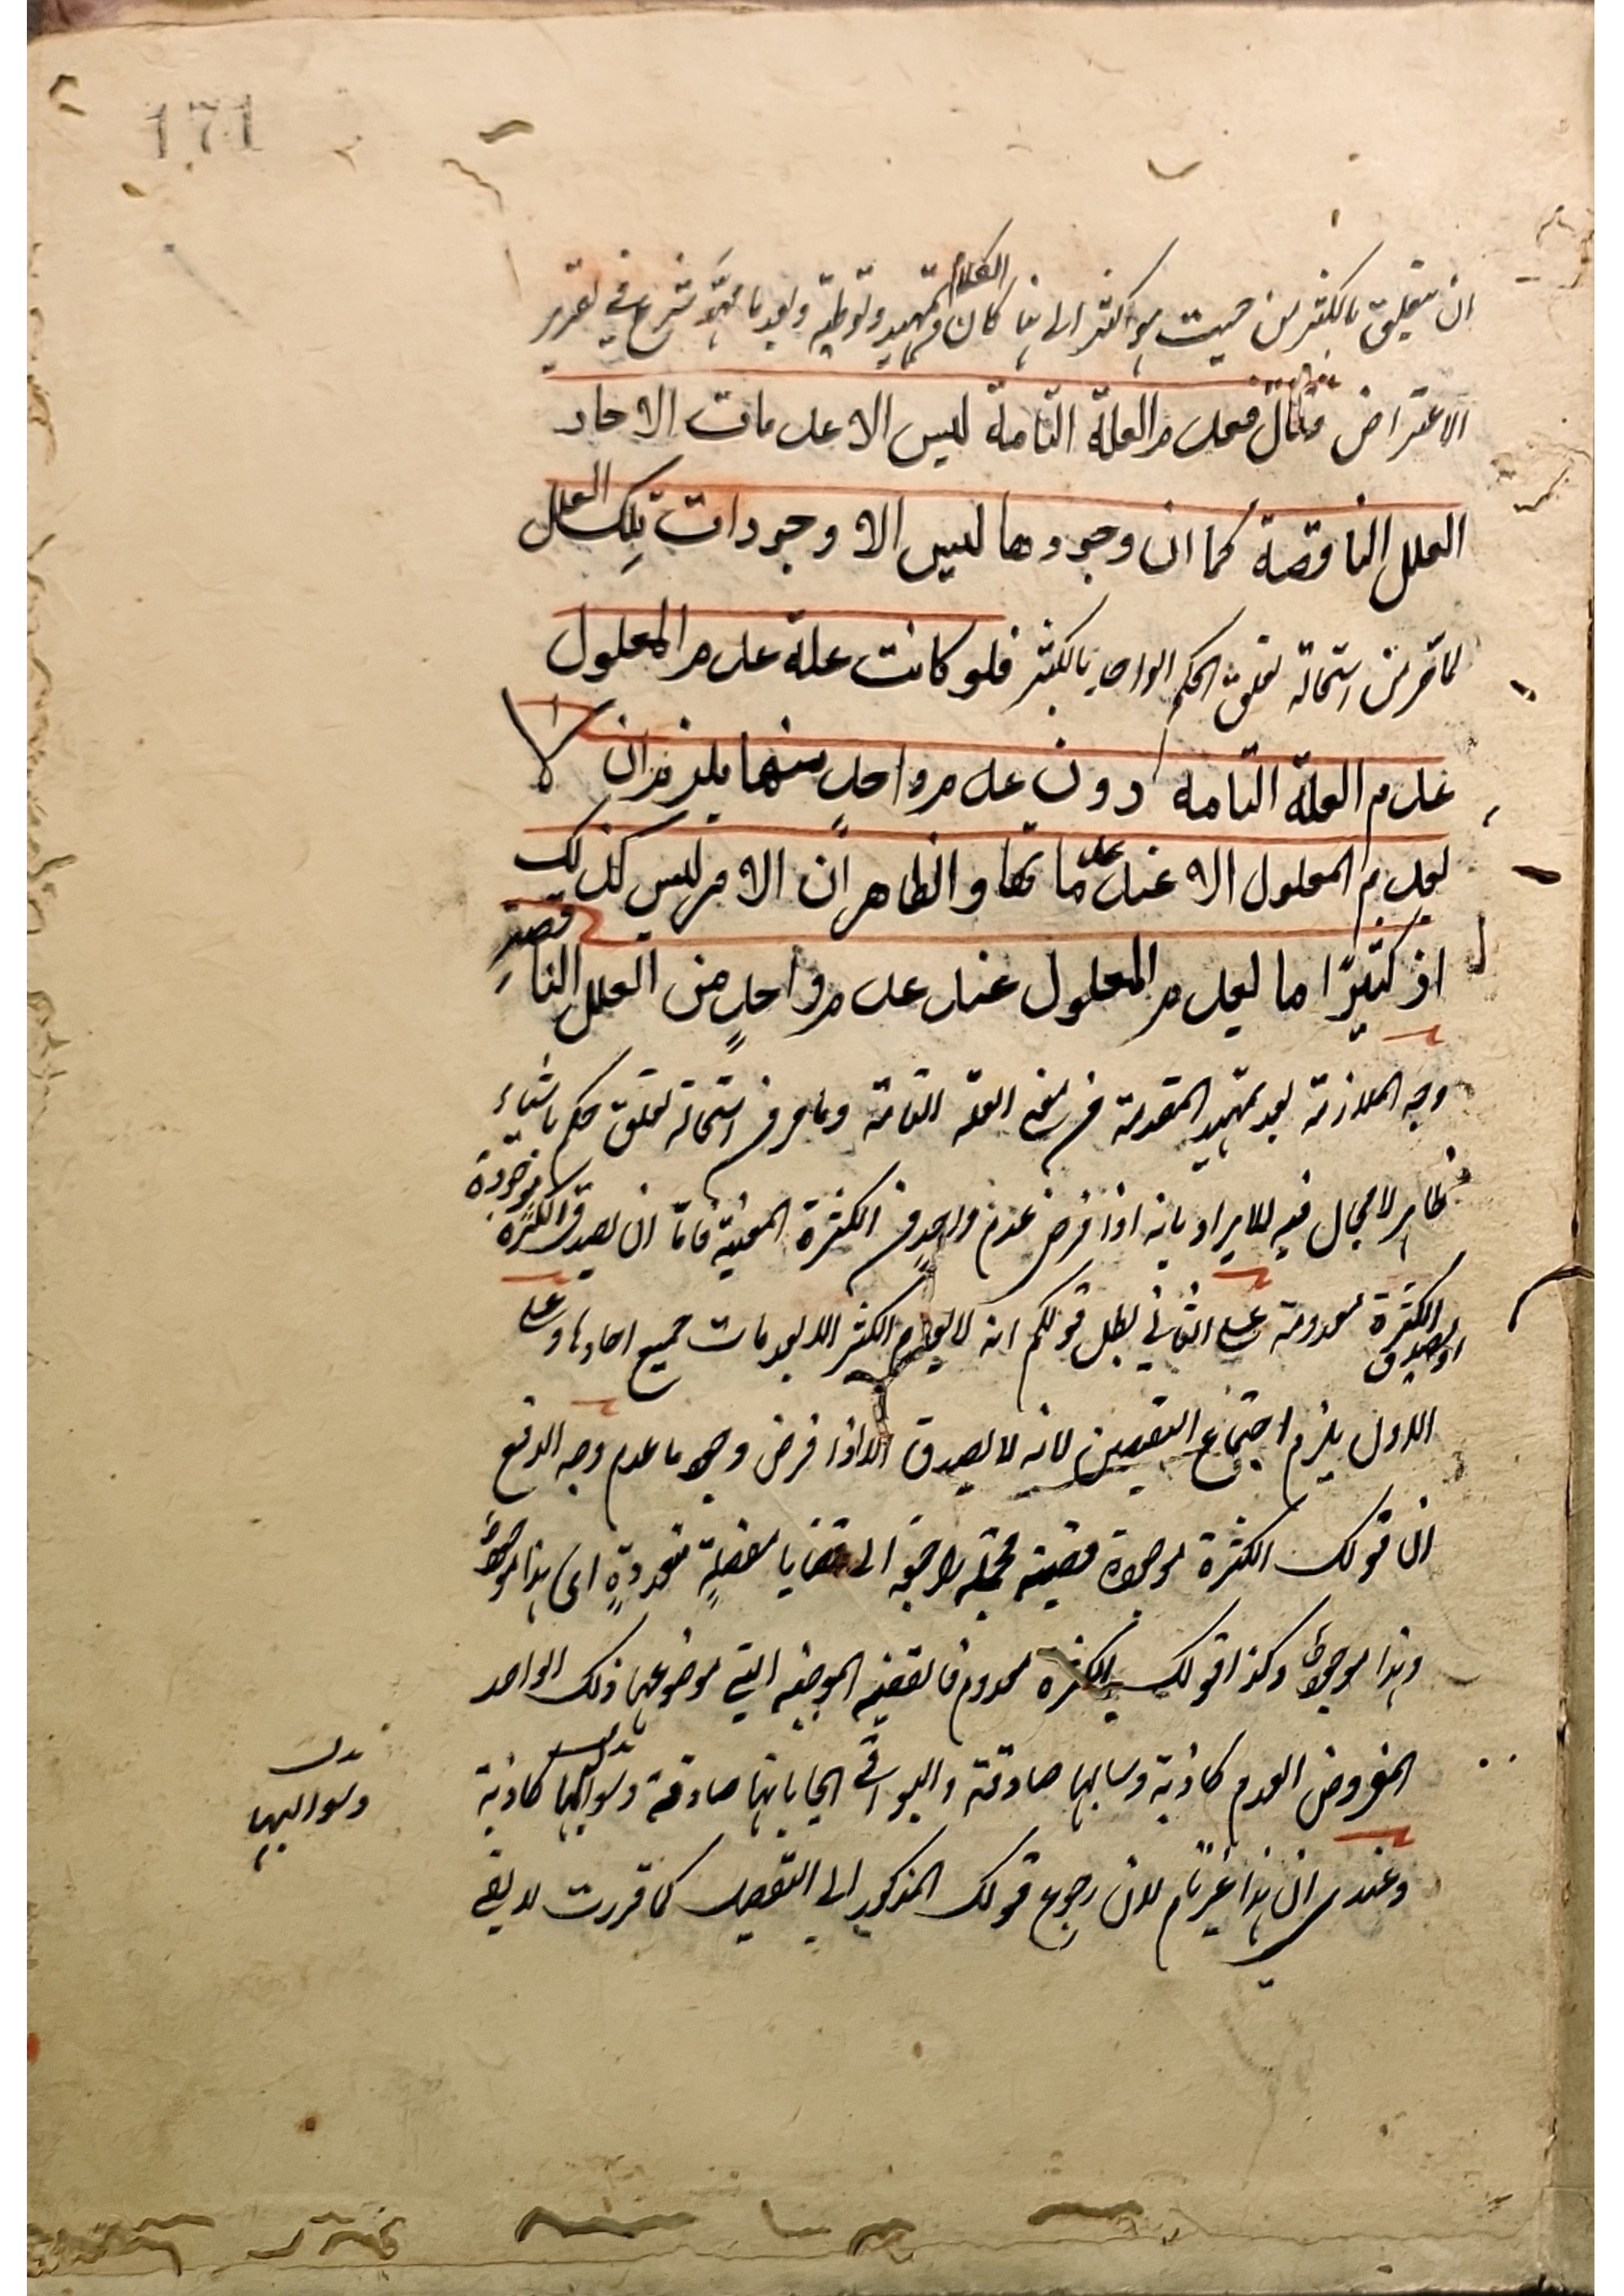 171
ان يتعلق بالكثير من حيث هو كثير الى هنا كان الكلام تمهيد وتوطية وبعد ما مهّد شرع في تقرير
الاعتراض فقال فعدم العلة التامة ليس الا عدمات الاحاد
العلل الناقصة كما ان وجودها ليس الا وجودات تلك العلل
لما مر من استحالة تعلق الحكم الواحد بالكثير فلو كانت علة عدم المعلول
عدم العلة التامة دون عدم واحدٍ منها يلزم ان لا
يعدم المعلول الا عند عدماتها والظاهر ان الامر ليس كذلك
اذ كثيرًا ما يعدم المعلول عند عدم واحدٍ من العلل الناقصة
وجه الملازمة بعد تمهيد المقدمة من معنى العلة التامة وما مر من استحالة تعلق حكم باشياء
ظاهر لا مجال فيه للايراد بانه اذا فرض عدم واحدٍ من الكثرة المعينة فامّا ان يصدق الكثرة موجودة
او يصدق الكثرة معدومة على الثاني بطل قولكم انه لا يعدم الكثير الا بعدمات جميع احادها وعلى
الاول يلزم اجتماع النقيضين لانه لا يصدق الا اذا فرض وجود ما عدم وجه الدفع
ان قولك الكثرة موجودة قضية مجملة راجعة الى قضايا مفصلةٍ متعددةٍ اى هذا موجودٌ
وهذا موجودٌ وكذا قولك الكثرة معدوم فالقضية الموجبة التي موضوعها ذلك الواحد
المفروض العدم كاذبة وسالبها صادقة والبواقي ايجاباتها صادقة وسوالبها كاذبة
وسوالبها
وعندي ان هذا غير تام لان رجوع قولك المذكور الى التفصيل كما قررت لا يقي